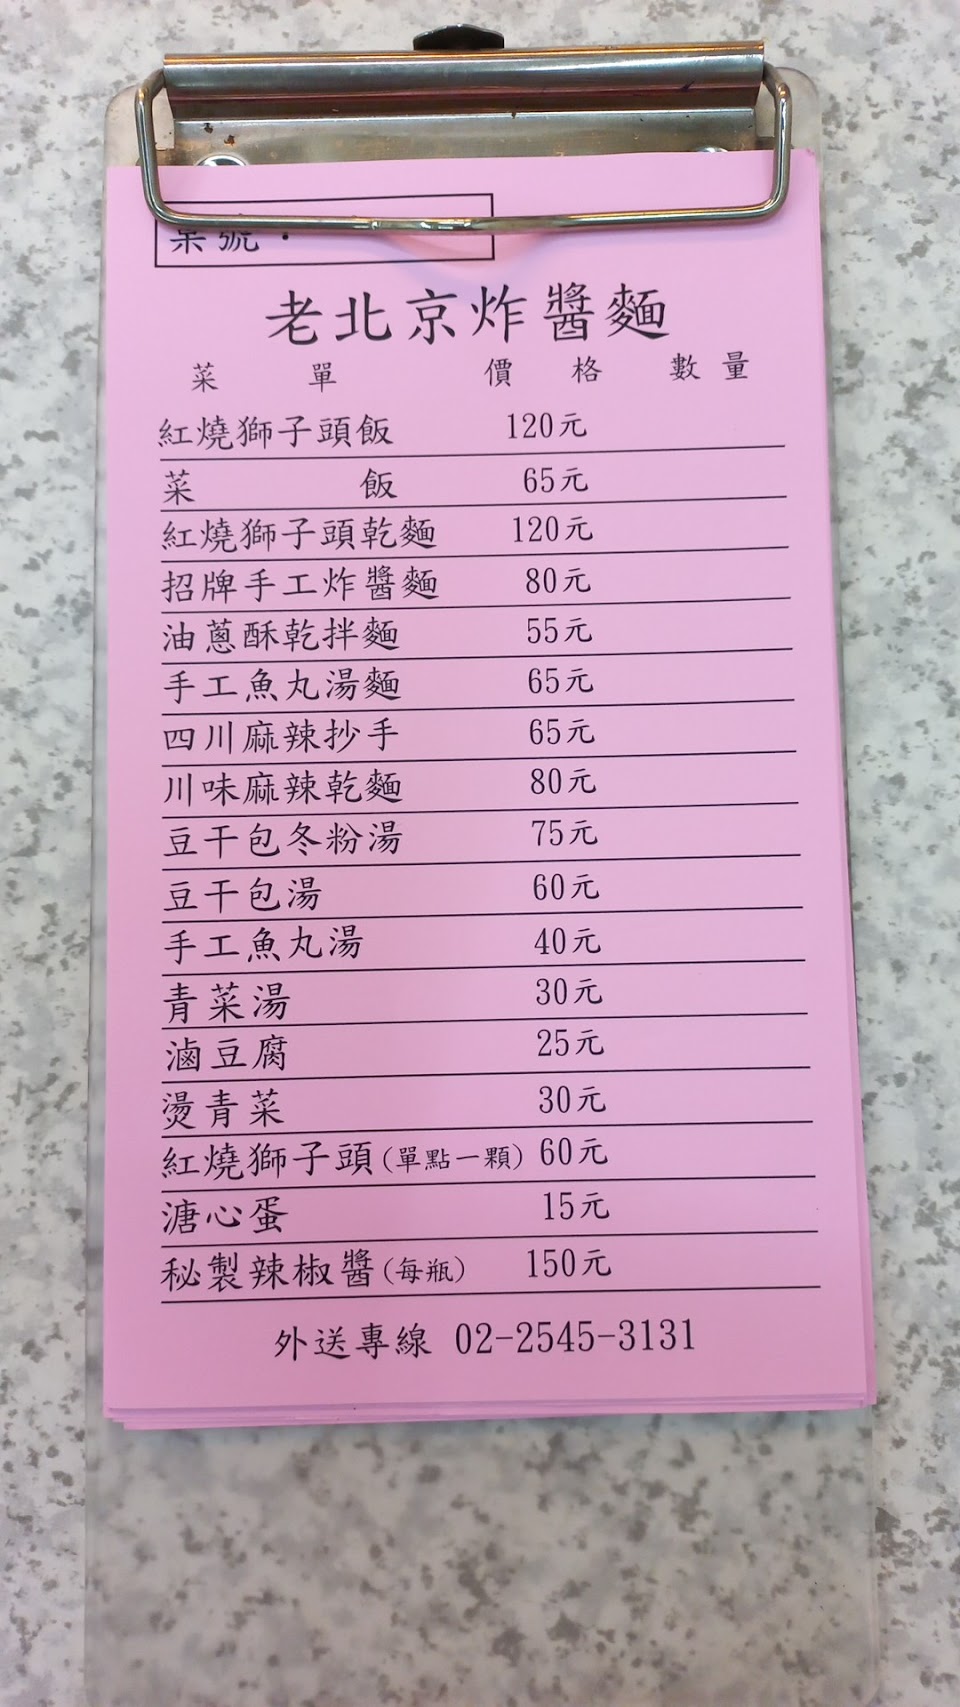 桌號：
老北京炸醬麵
菜單 價格 數量
紅燒獅子頭飯 120元
菜飯 65元
紅燒獅子頭乾麵 120元
招牌手工炸醬麵 80元
油蔥酥乾拌麵 55元
手工魚丸湯麵 65元
四川麻辣抄手 65元
川味麻辣乾麵 80元
豆干包冬粉湯 75元
豆干包湯 60元
手工魚丸湯 40元
青菜湯 30元
滷豆腐 25元
燙青菜 30元
紅燒獅子頭(單點一顆) 60元
溏心蛋 15元
秘製辣椒醬(每瓶) 150元
外送專線 02-2545-3131